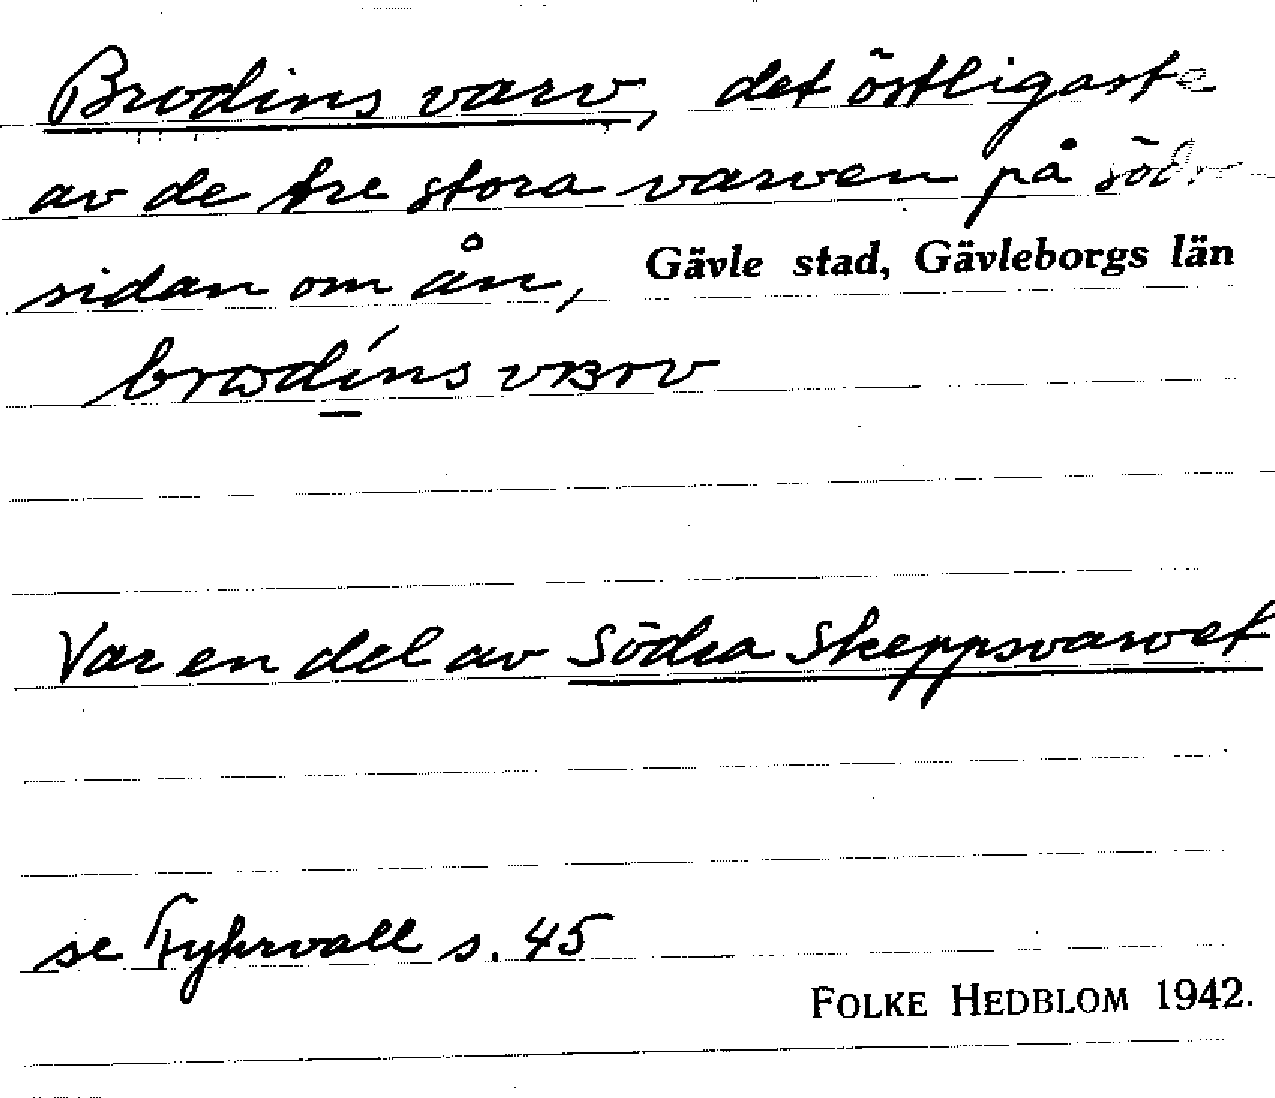 Brodins varv, det östligaste
av de tre stora varven på södra
sidan om ån, Gävle stad, Gävleborgs län
Var en del av Södra Skeppsvarvet
se Fyhrvall s. 45
FOLKE HEDBLOM 1942.